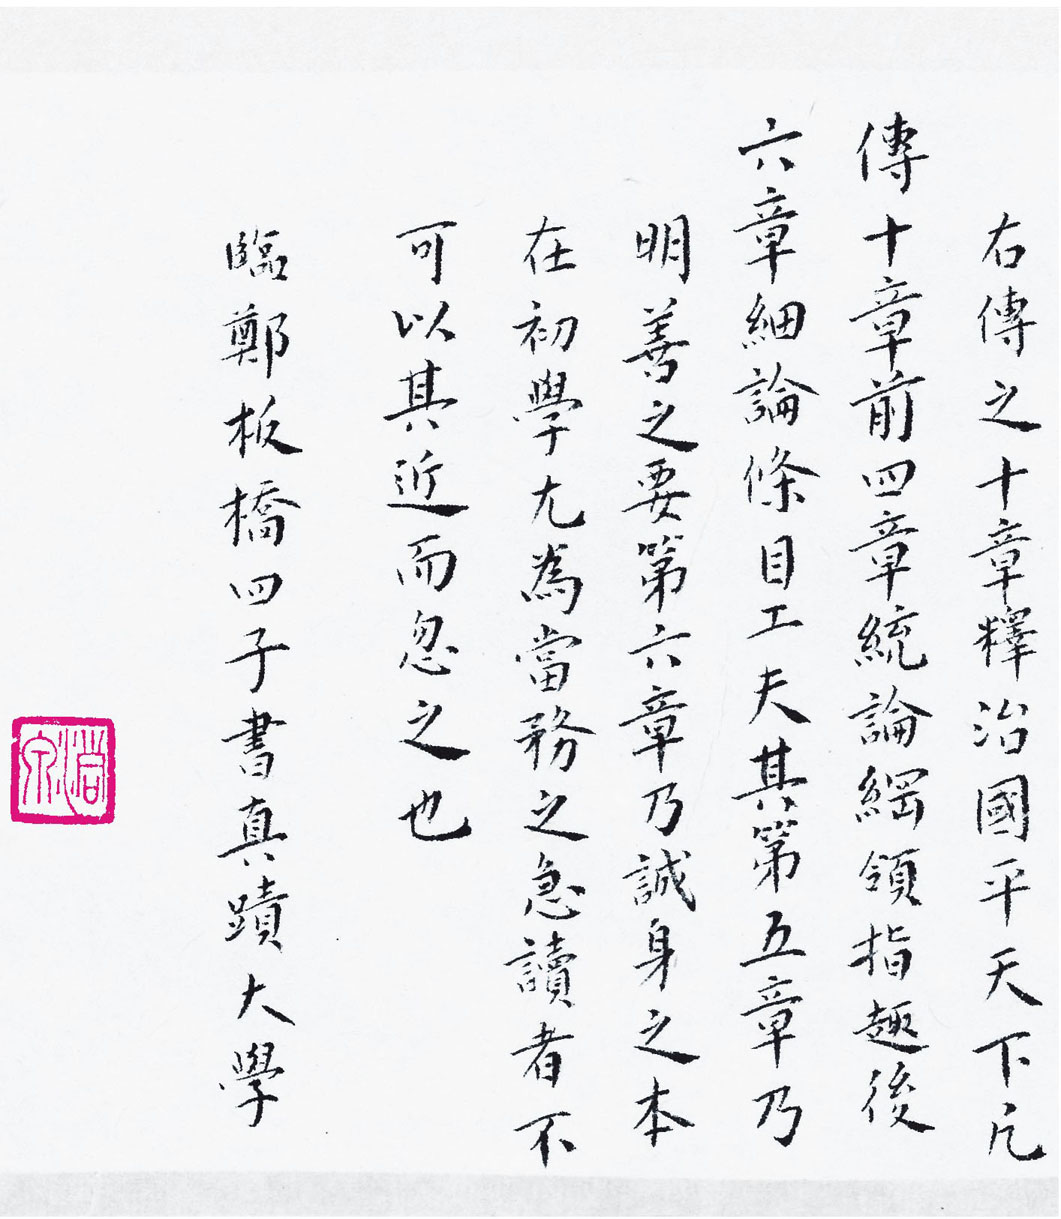 右傳之十章釋治國平天下凡
傳十章前四章統論綱領指趣後
六章細論條目工夫其第五章乃
明善之要第六章乃誠身之本
在初學尤為當務之急讀者不
可以其近而忽之也
臨鄭板橋四子書真蹟大學